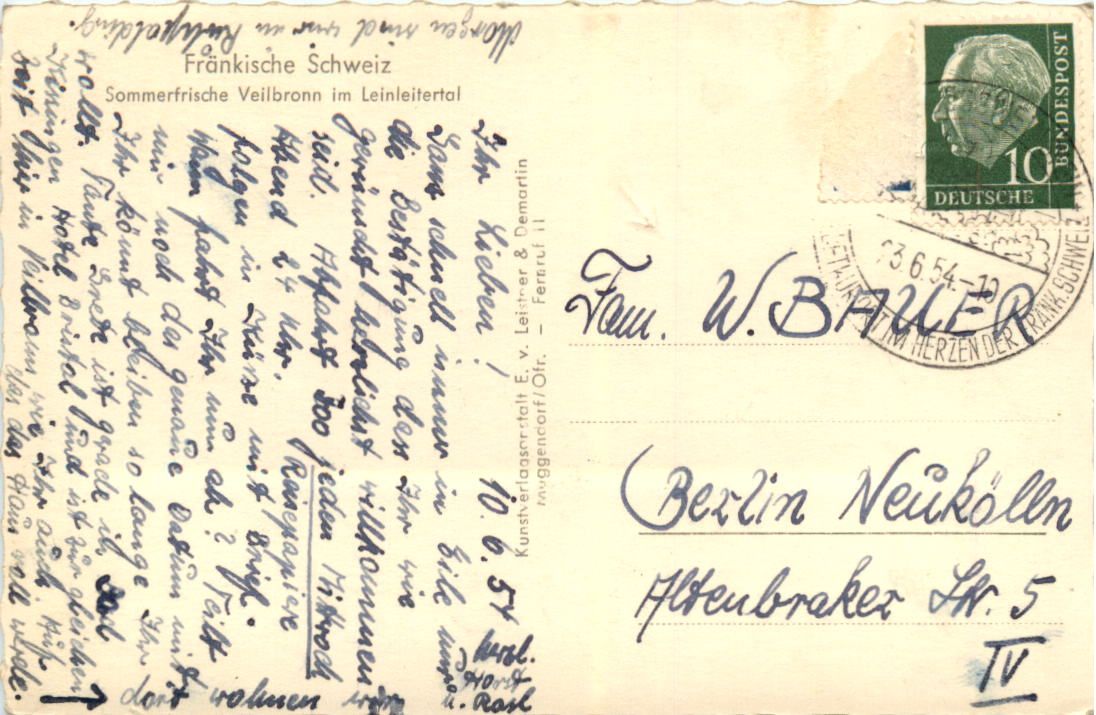 Morgen sind wir in Ruhpolding.
Fränkische Schweiz
Sommerfrische Veilbronn im Leinleitertal
Ihr Lieben! 10. 6. 54
Ganz schnell immer in Eile nur
die Bestätigung dass Ihr wie
gewünscht herzlichst willkommen
seid. Abfahrt Zoo jeden Mittwoch
Abend 24 Uhr. Reisepapiere
folgen in Kürze mit Brief.
Wann fahrt Ihr nun ab? Teilt
mir noch das genaue Datum mit
Ihr könnt bleiben so lange Ihr
wollt. Tante Grete ist grade in Bad
Kissingen Hotel Bristol und ist zur gleichen
Zeit hier in Veilbronn wie Ihr auch. Auf
das das Haus voll werde.
→ dort wohnen wir
Herzl.
Horst
u. Rosl
Kunstverlagsanstalt E. v. Leistner & Demartin
Muggendorf/Ofr. – Fernruf 11
BUNDESPOST
10
DEUTSCHE
23.6.54.-10
IM HERZEN DER FRÄNK. SCHWEIZ
Fam. W. BAUER
Berlin Neukölln
Altenbraker Str. 5
IV